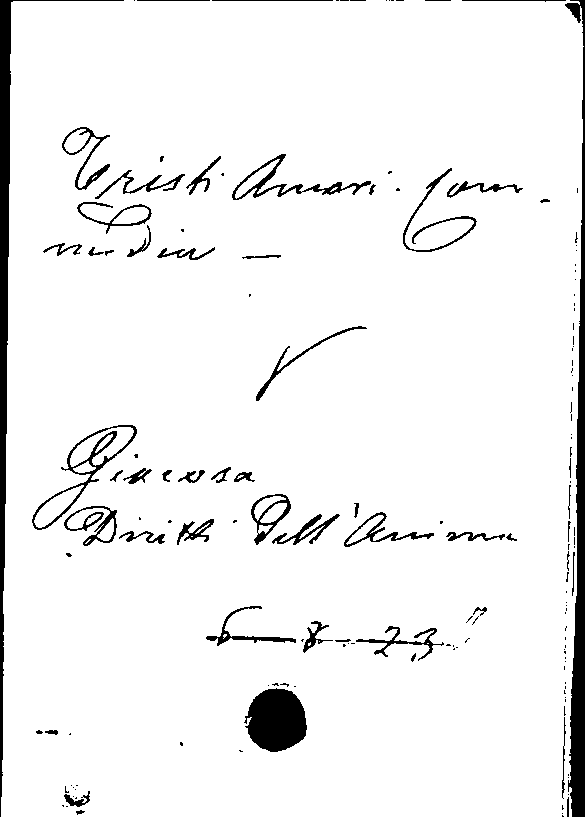 Tristi Amori. Com-
media —
Giacosa
Diritti Dell'Anima
6 8 23